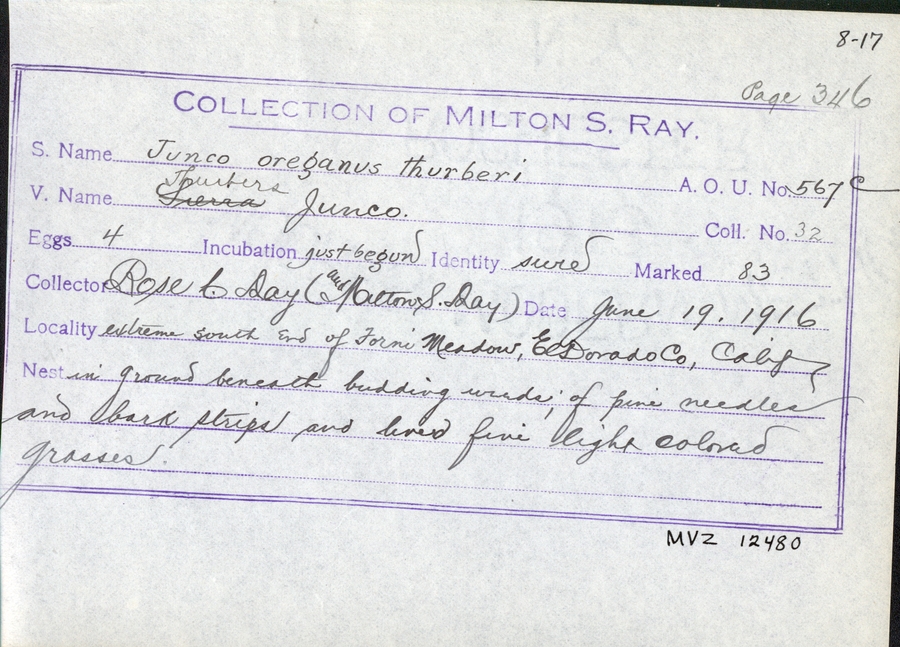 8-17
Page 346
COLLECTION OF MILTON S. RAY.
S. Name Junco oreganus thurberi A. O. U. No. 567 c
Thurbers
V. Name Sierra Junco. Coll. No. 32
Eggs 4 Incubation just begun Identity sure Marked 83
Collector Rose C Ray (and Milton S. Ray) Date June 19. 1916
Locality extreme south end of Forni Meadow, El Dorado Co, Calif
Nest in ground beneath budding weeds; of pine needles
and bark strips and lined fine light colored
grasses.
MVZ 12480